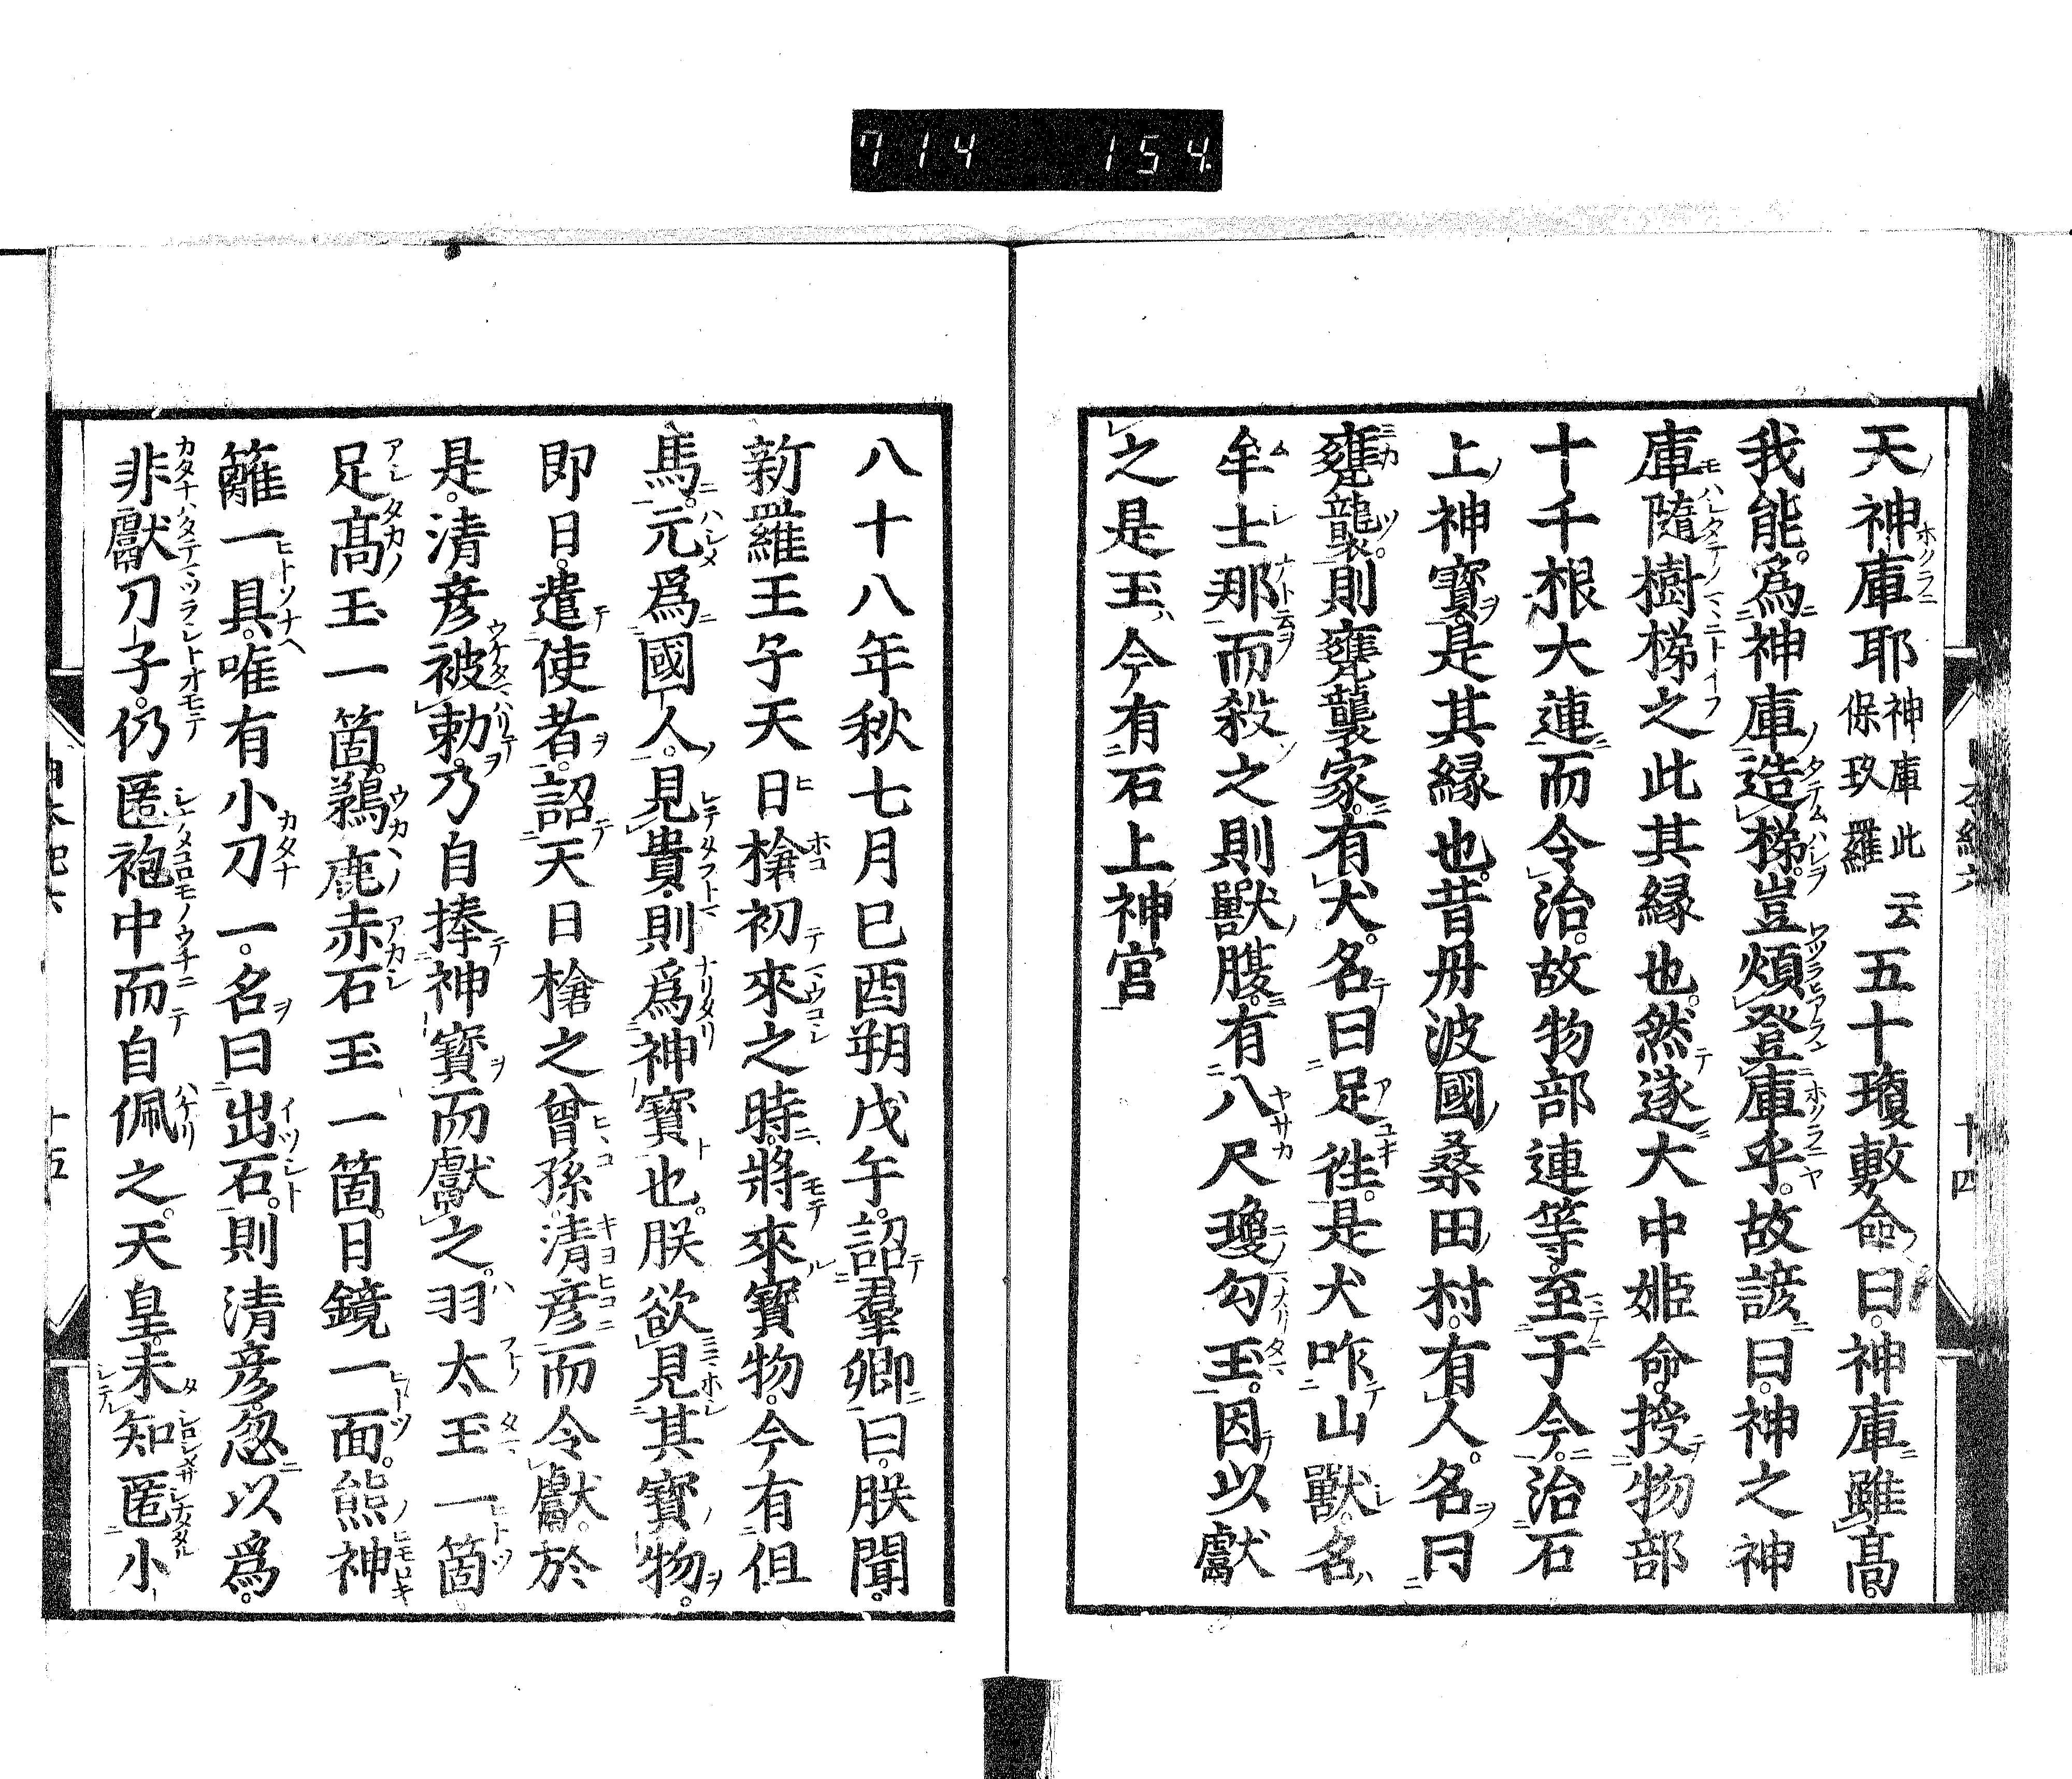 714 154
天神庫耶神庫此云保玖羅五十瓊敷命曰神庫雖高
我能爲神庫造梯豈煩登庫乎故諺曰神之神
庫隨樹梯之此其縁也然遂大中姫命授物部
十千根大連而令治故物部連等至于今治石
上神寶是其縁也昔丹波國桑田村有人名曰
甕襲則甕襲家有犬名曰足徃是犬咋山獸名
牟士那而殺之則獸腹有八尺瓊勾玉因以獻
之是玉今有石上神宮
八十八年秋七月己酉朔戊午詔羣卿曰朕聞
新羅王子天日槍初來之時將來寶物今有但
馬元爲國人見貴則爲神寶也朕欲見其寶物
即日遣使者詔天日槍之曾孫清彦而令獻於
是清彦被勅乃自捧神寶而獻之羽太玉一箇
足高玉一箇鵜鹿赤石玉一箇日鏡一面熊神
籬一具唯有小刀一名曰出石則清彦忽以爲
非獻刀子仍匿袍中而自佩之天皇未知匿小